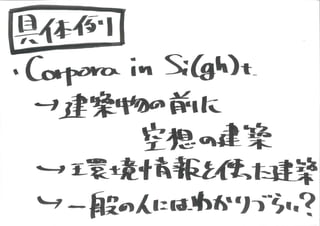 具体例
・Corpora in Si(gh)t
→建築物の前に
空想の建築
→環境情報を使った建築
→一般の人にはわかりづらい?